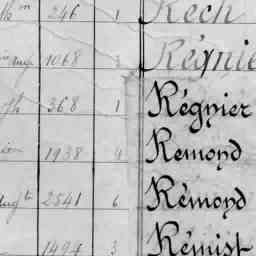 246 1 Rech
1068 3 Régnie
368 1 Régnier
1938 4 Remond
2541 6 Rémond
1494 3 Rémist